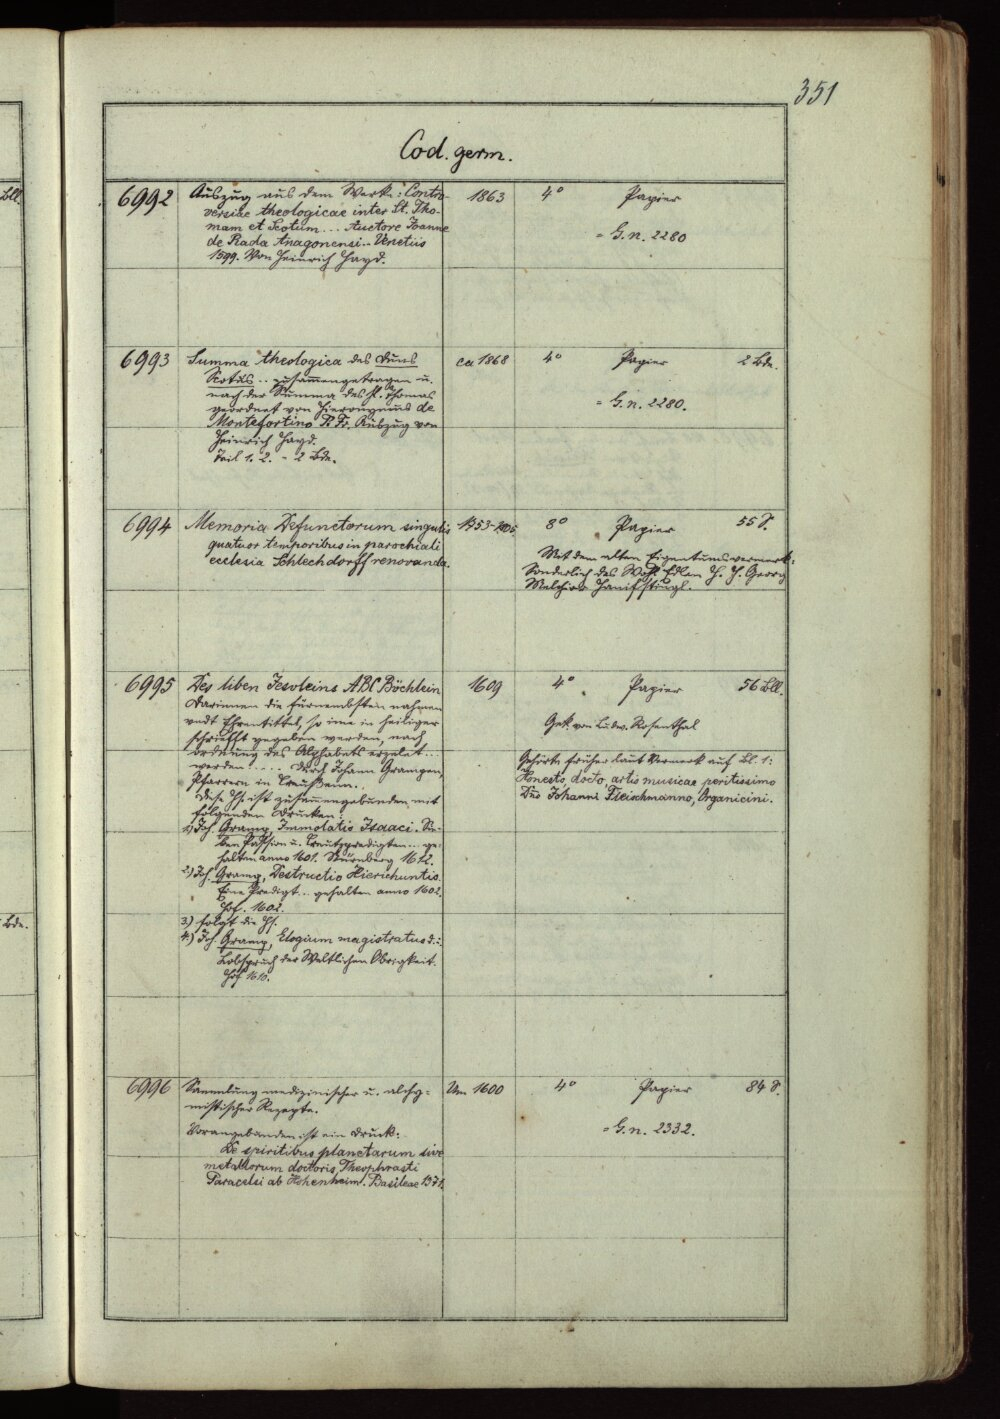 351
Cod. germ.
Bll.
6992 Auszug aus dem Werke: Contro- 1863 4° Papier
versiae theologicae inter St. Tho-
mam et Scotum... Auctore Joanne = G.n. 2280
de Rada Aragonensi.. Venetiis
1599. Von Heinrich Hayd.
6993 Summa theologica des Duns ca 1868 4° Papier 2 Bde.
Scotus.. zusammengetragen u.
nach der Summa des hl. Thomas
geordnet von Hieronymus de = G.n. 2280.
Montefortino P. Fr. Auszug von
Heinrich Hayd.
Teil 1. 2. - 2 Bde.
6994 Memoria Defunctorum singulis 8° Papier 55 S.
quatuor temporibus in parochiali
ecclesia Schlechdorff renovanda.
Mit dem alten Eigentumsvermerk:
Sonderlich des Edlen H. H. Georg
Melchior
6995 Des liben Jesuleins ABC Böchlein 1609 4° Papier 56 Bll.
Darinnen die fürnembsten nahmen
undt Ehrentittel, so ime in heiliger
schrifft gegeben werden, nach
ordnung des Alphabets erzelet...
werden.... Durch Johann Grampen,
Pfarrern in Creußenn.
Gek. von Ludw. Rosenthal
Gehörte früher laut Vermerk auf Bl. 1:
Honesto, docto artis musicae peritissimo
Dno Johanni Fleischmanno, Organicini.
Diese Hs. ist zusammengebunden mit
folgenden Drucken:
1.) Joh. Gramp, Immolatio Isaaci. Sie-
ben Passion u. Creutzpredigten... ge-
halten anno 1601. Nürnberg 1612.
2.) Joh. Gramp, Destructio Hierichuntis.
Eine Predigt.. gehalten anno 1602.
Hof. 1602.
3.) folgt die Hs.
4.) Joh. Gramp, Elogium magistratus d. i.
Lobspruch der Weltlichen Obrigkeit.
Hof 1610.
Bde.
6996 Sammlung medizinischer u. alchy- Um 1600 4° Papier 84 S.
mistischer Rezepte.
Vorangebunden ist ein Druck: = G.n. 2332.
De spiritibus planetarum sive
metallorum doctoris Theophrasti
Paracelsi ab Hohenheim. Basileae 1571.